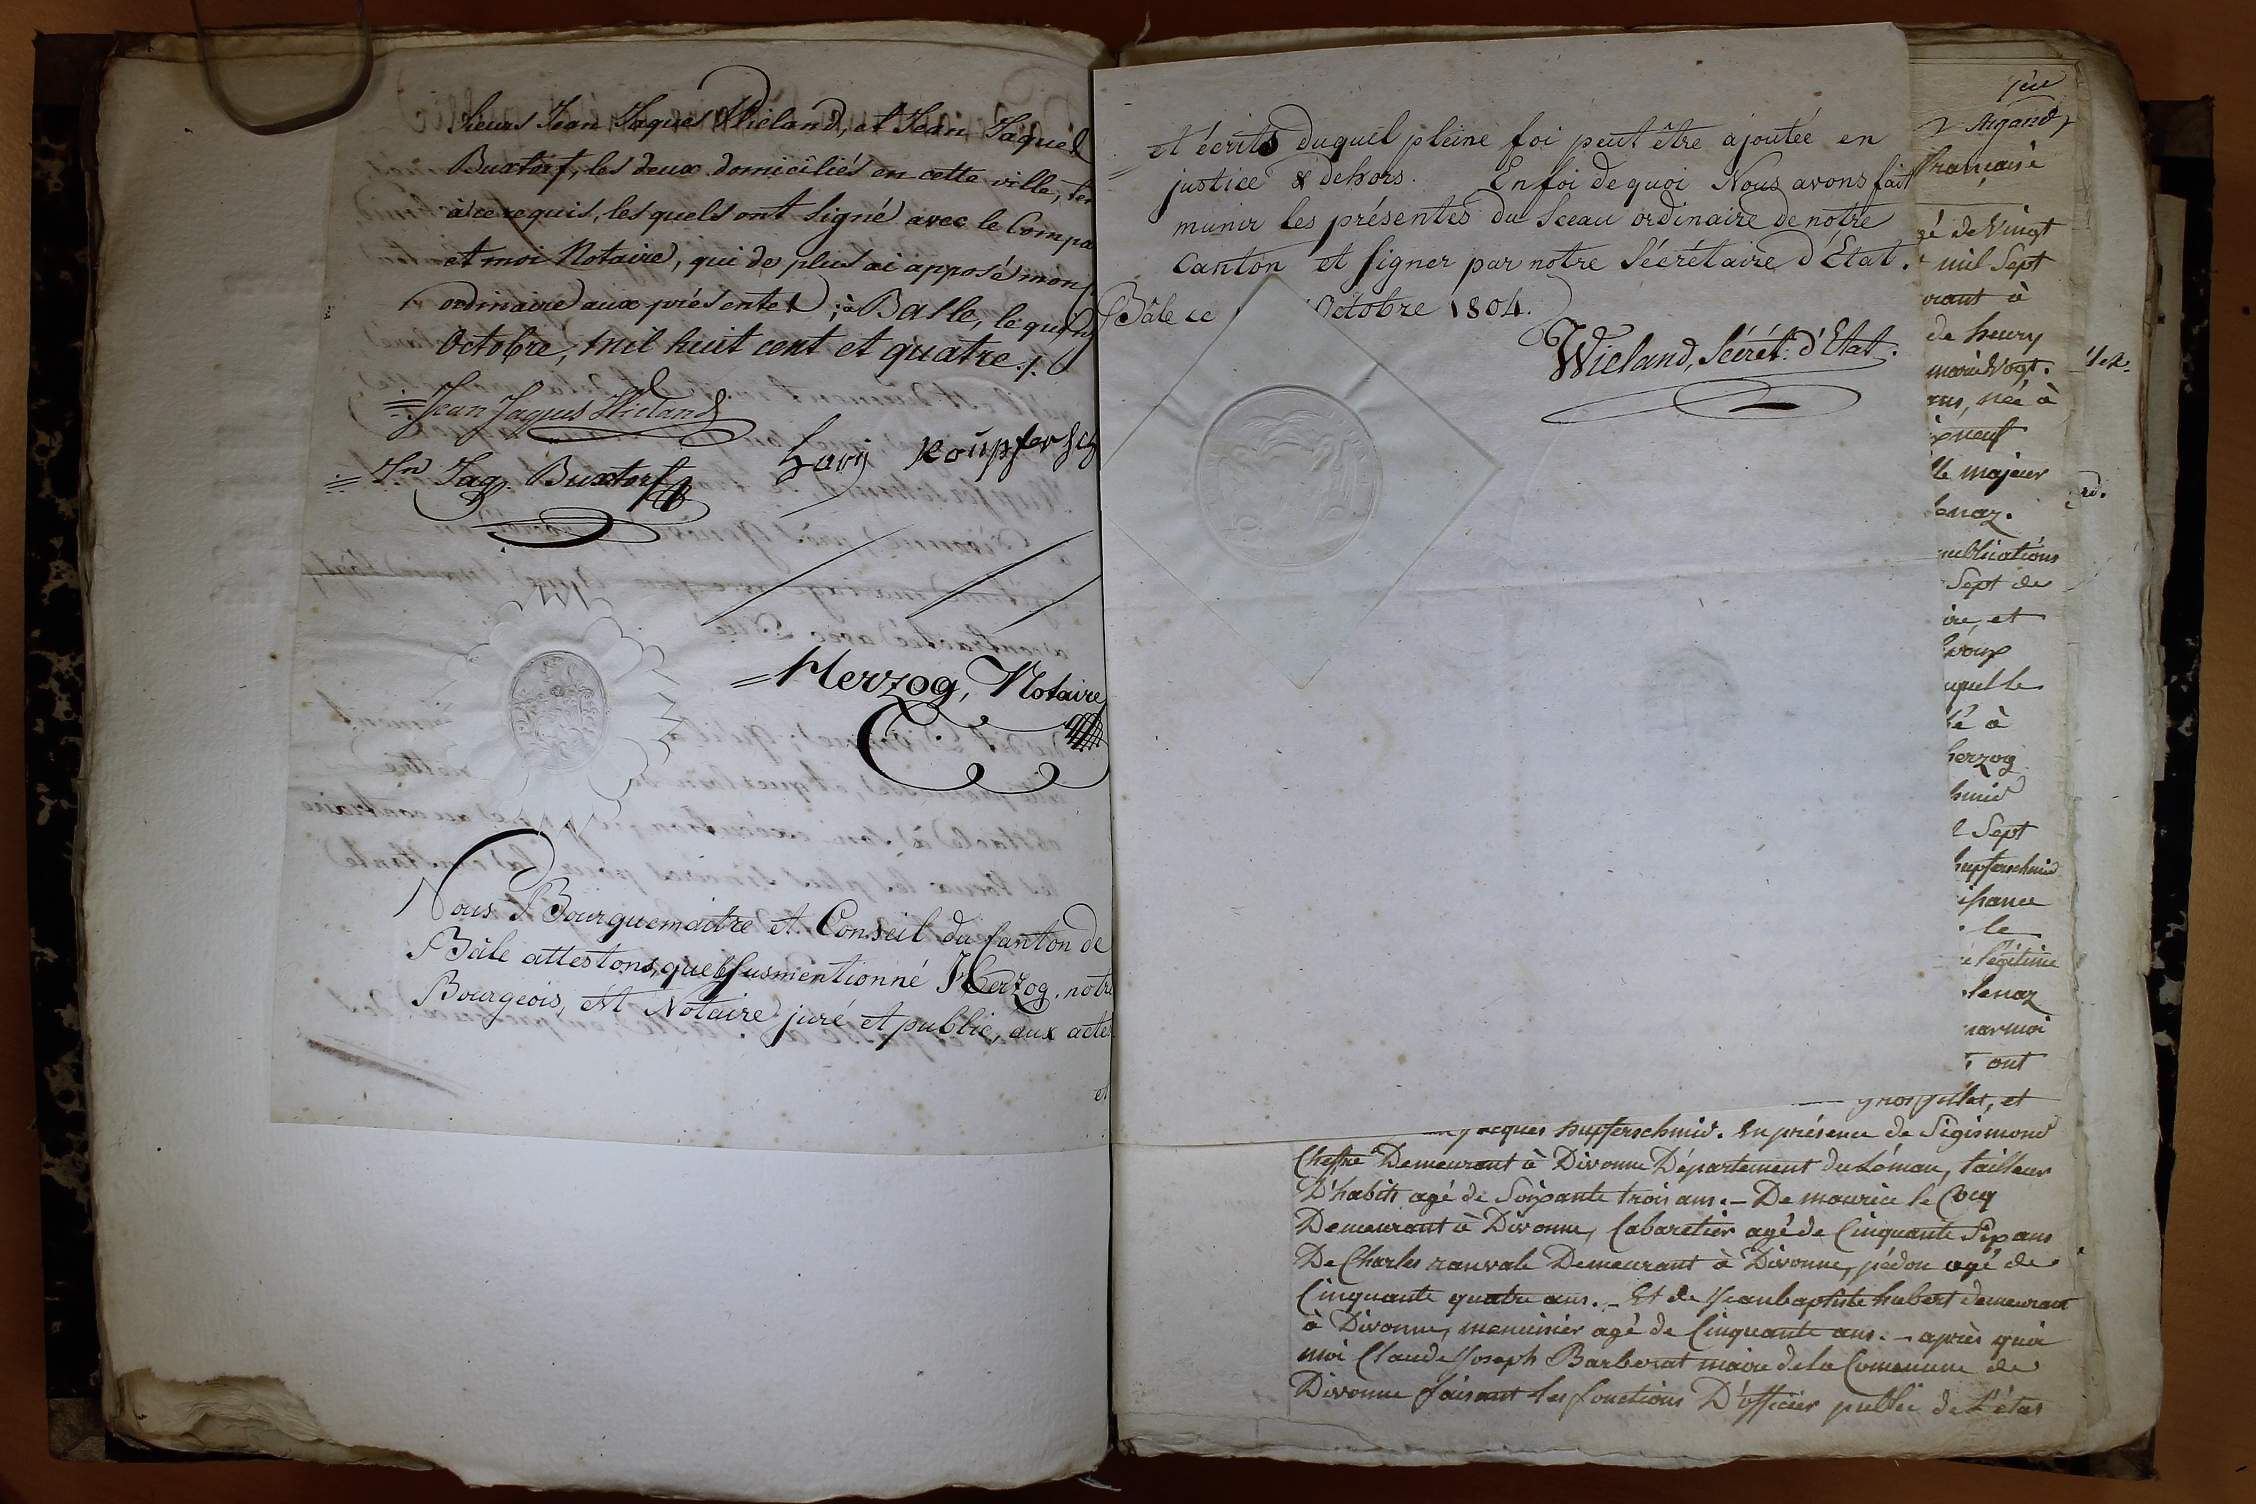 Sieurs Jean Jaques Wieland, et Jean Jaques
Buxtorf, les deux domiciliés en cette ville,
à ce requis, lesquels ont signé avec le Compa
et moi Notaire, qui de plus ai apposé mon
ordinaire aux présentes; à Basle, le quinz
Octobre, mil huit cent et quatre ./.
Jean Jaques Wieland
Jn Jaq. Buxtorf
Herzog, Notaire
Nous Bourguemaitre et Conseil du Canton de
Bâle attestons, que le susmentionné Herzog, notre
Bourgeois, est Notaire juré et public, aux acte
et
et écrits duquel pleine foi peut être ajoutée en
justice & dehors. En foi de quoi Nous avons fait
munir les présentes du Sceau ordinaire de notre
Canton et signer par notre Sécrétaire d'Etat.
Bâle ce Octobre 1804.
Wieland, Sécrét: d'Etat.
Argand
française
gé de Vingt
mil Sept
urant à
de henry
marie Vogt.
ans, née à
neuf
le majeur
lenaz.
publications
Sept de
ire, et
Epoux
uquelle
té à
herzog
hmid
Sept
hupferschmid
le
légitime
lenaz
par moi
ont
et
jacques hupferschmid. En présence de Sigismond
Demeurant à Divonne Département du Léman, tailleur
D'habits agé de Soixante trois ans. – De maurice le Coq
Demeurant à Divonne, Cabaretier agé de Cinquante Six ans
De Charles ranvale Demeurant à Divonne, pédon agé de
Cinquante quatre ans. – Et de Jean baptiste hubert demeurant
à Divonne, menuisier agé de Cinquante ans. – après quoi
moi Claude Joseph Barberat maire de la Commune de
Divonne faisant les fonctions D'officier public de L'état